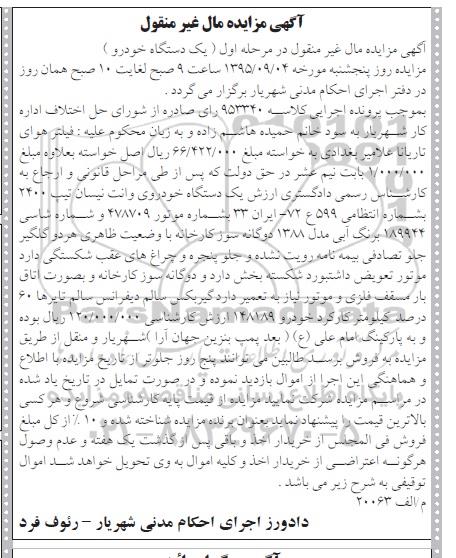 آگهی مزایده مال غیر منقول
آگهی مزایده مال غیر منقول در مرحله اول ( یک دستگاه خودرو )
مزایده روز پنجشنبه مورخه ۱۳۹۵/۰۹/۰۴ ساعت ۹ صبح لغایت ۱۰ صبح همان روز
در دفتر اجرای احکام مدنی شهریار برگزار می گردد .
بموجب پرونده اجرایی کلاسه ۹۵۳۳۴۰ رای صادره از شورای حل اختلاف اداره
کار شهریار به سود خانم حمیده هاشم زاده و به زیان محکوم علیه : فیلتر هوای
تاریانا غلامیر بغدادی به خواسته مبلغ ۶۶/۴۲۲/۰۰۰ ریال اصل خواسته بعلاوه مبلغ
۱/۰۰۰/۰۰۰ بابت نیم عشر در حق دولت که پس از طی مراحل قانونی و ارجاع به
کارشناس رسمی دادگستری ارزش یک دستگاه خودروی وانت نیسان تیپ ۲۴۰۰
بشماره انتظامی ۵۹۹ ع ۷۲- ایران ۳۳ بشماره موتور ۴۷۸۷۰۹ و شماره شاسی
۱۸۹۹۴۴ برنگ آبی مدل ۱۳۸۸ دوگانه سوز کارخانه با وضعیت ظاهری هر دو گلگیر
جلو تصادفی بیمه نامه رویت نشده و جلو پنجره و چراغ های عقب شکستگی دارد
موتور تعویض داشتبورد شکسته بخش دارد و دوگانه سوز کارخانه و بصورت اتاق
بار مسقف فلزی و موتور نیاز به تعمیر دارد گیربکس سالم دیفرانس سالم تایرها ۶۰
درصد کیلومتر کارکرد خودرو ۱۴۸۱۸۹ ارزش کارشناسی ۱۲۰/۰۰۰/۰۰۰ ریال بوده
و به پارکینگ امام علی (ع) ( بعد پمپ بنزین جهان آرا )شهریار و منقل از طریق
مزایده به فروش برسد طالبین می توانند پنج روز جلوتر از تاریخ مزایده با اطلاع
و هماهنگی این اجرا از اموال بازدید نموده و در صورت تمایل در تاریخ یاد شده
در مراسم مزایده شرکت نمایند مزایده از قیمت پایه کارشناسی شروع و هر کسی
بالاترین قیمت را پیشنهاد نماید بعنوان برنده مزایده شناخته شده و ۱۰ ٪ از کل مبلغ
فروش فی المجلس از خریدار اخذ و باقی پس از گذشت یک هفته و عدم وصول
هرگونه اعتراضی از خریدار اخذ و کلیه اموال به وی تحویل خواهد شد اموال
توقیفی به شرح زیر می باشد .
م/الف ۲۰۰۶۳
دادورز اجرای احکام مدنی شهریار – رئوف فرد